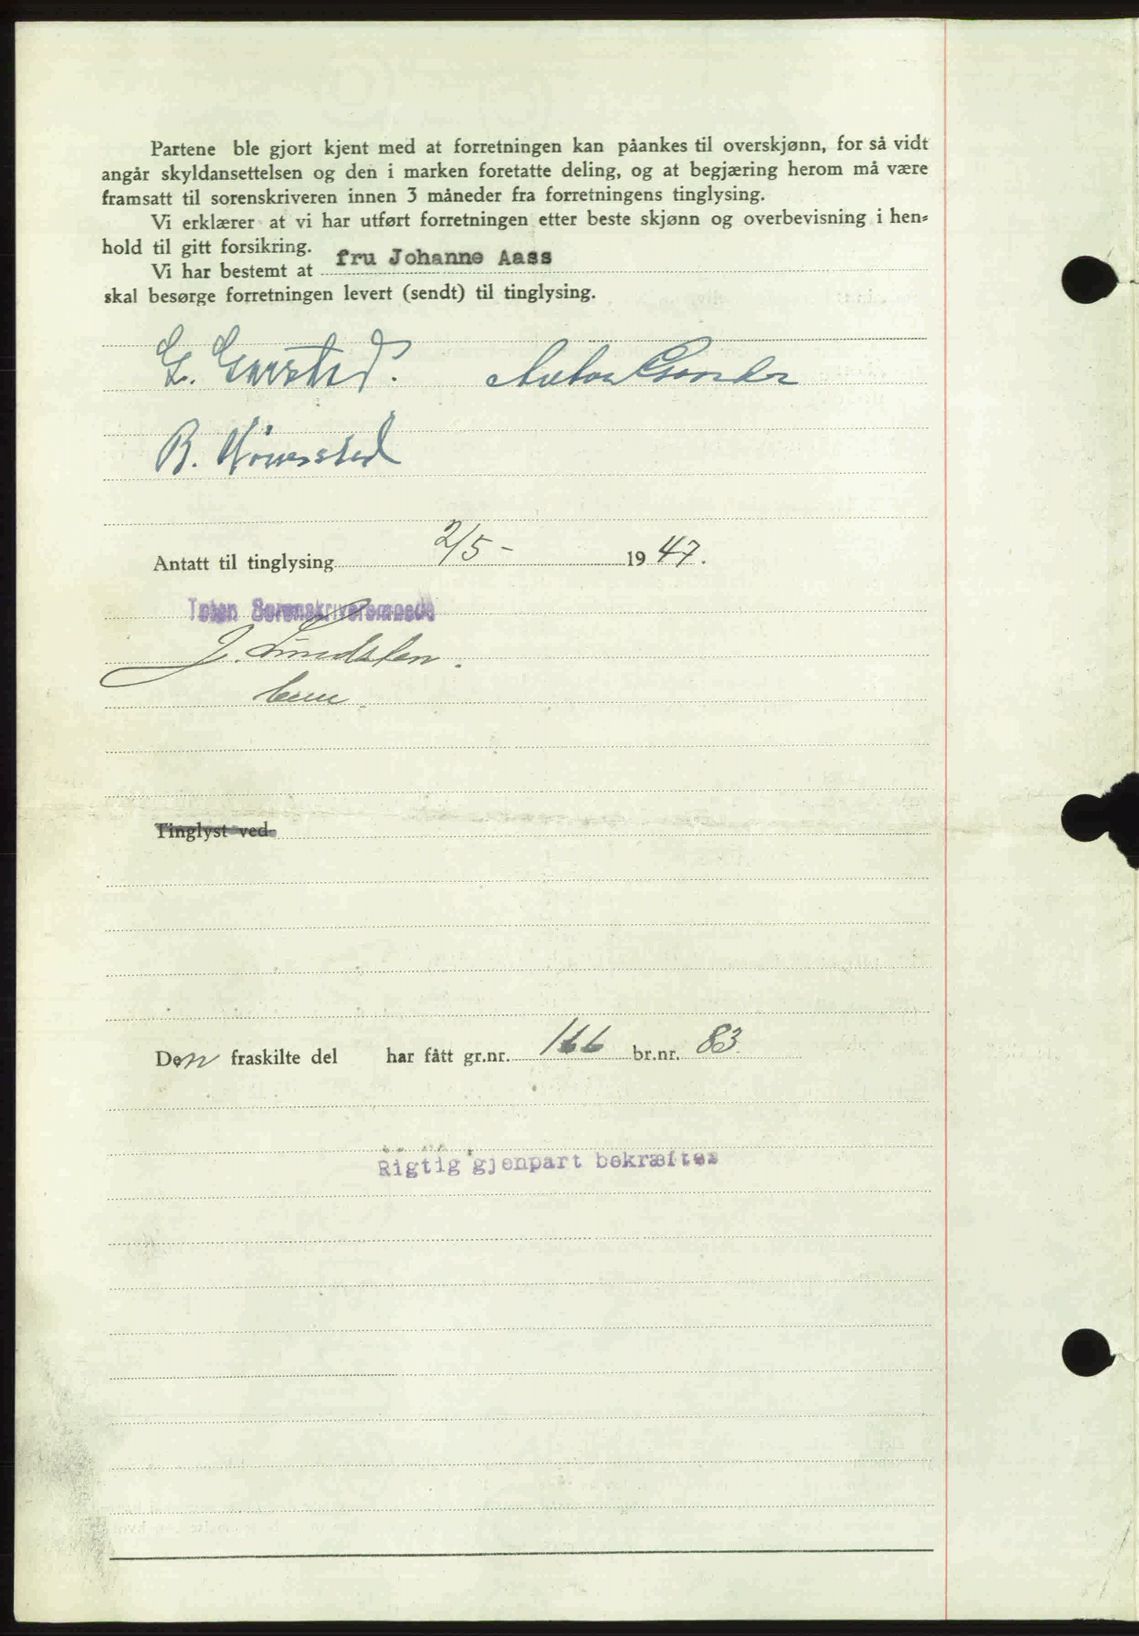 Partene ble gjort kjent med at forretningen kan påankes til overskjønn, for så vidt
angår skyldansettelsen og den i marken foretatte deling, og at begjæring herom må være
framsatt til sorenskriveren innen 3 måneder fra forretningens tinglysing.
Vi erklærer at vi har utført forretningen etter beste skjønn og overbevisning i hen=
hold til gitt forsikring.
Vi har bestemt at fru Johanne Aass
skal besørge forretningen levert (sendt) til tinglysing.
Anton
B.
Antatt til tinglysing 2/5- 1947.
Toten Sorenskriverembede
J. Lundsten.
Tinglyst ved
Den fraskilte del har fått gr.nr. 166 br.nr. 83
Rigtig gjenpart bekræftes